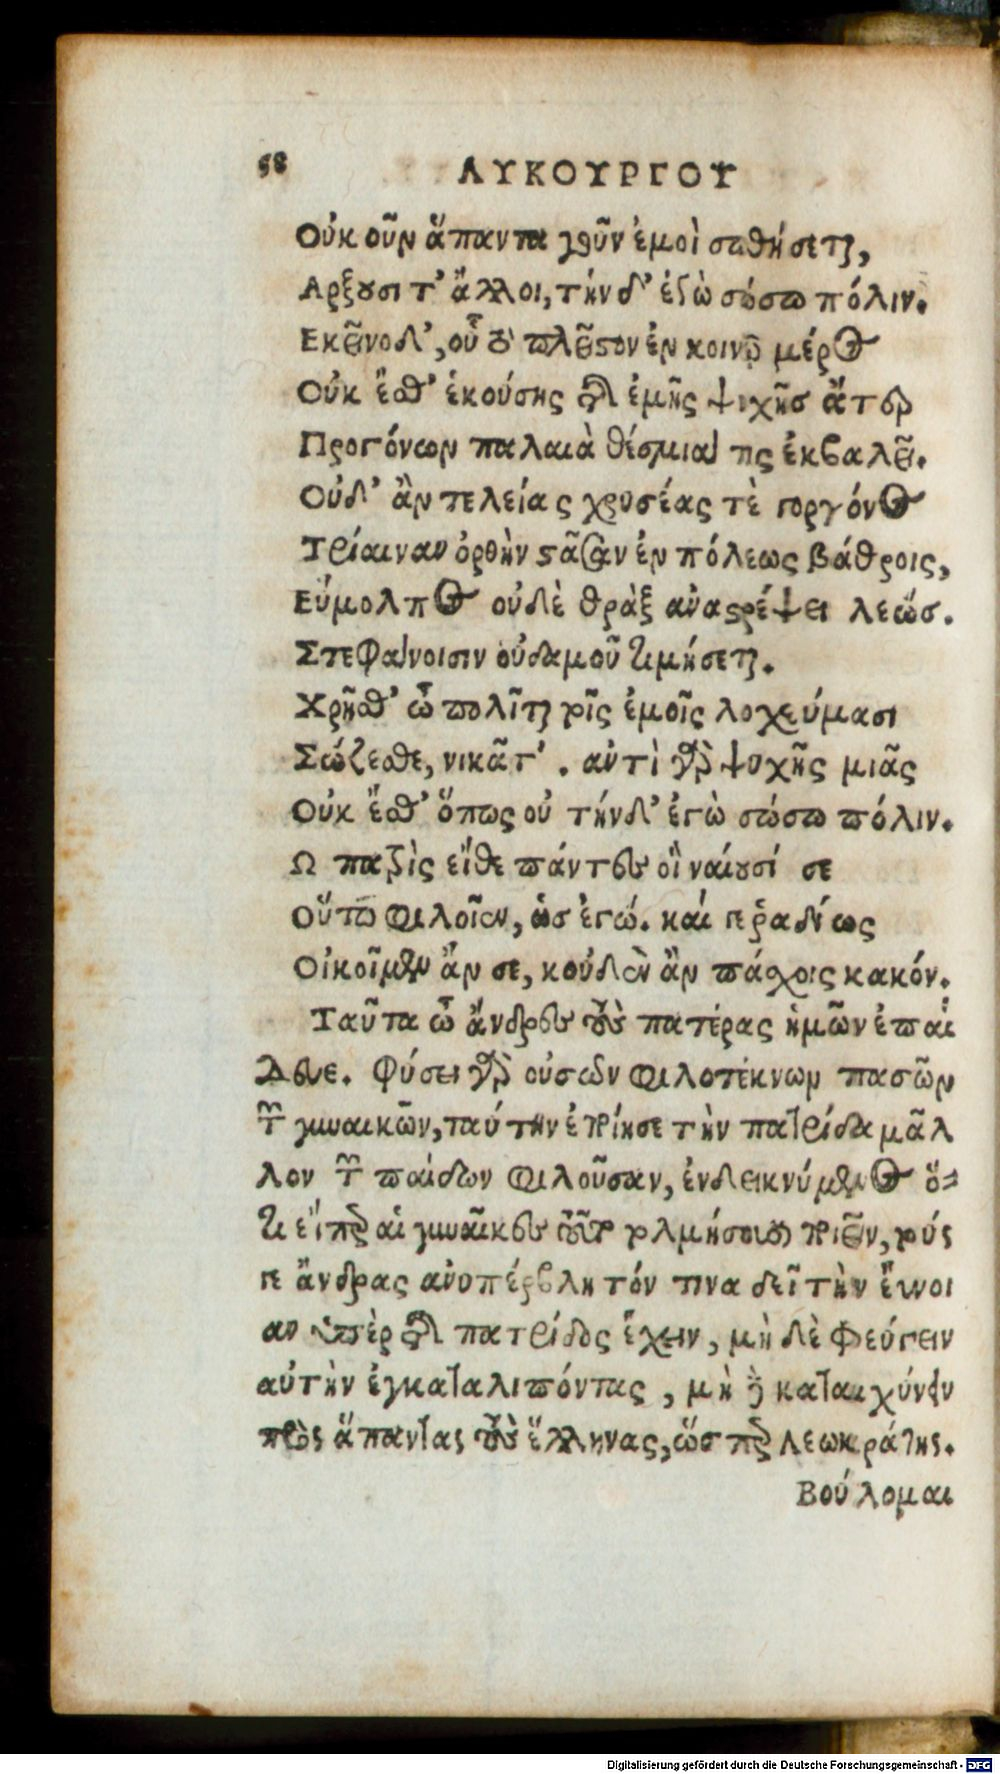 58 ΛΥΚΟΥΡΓΟΥ
Οὐκ οῦν ἅπαντα γοῦν ἐμοὶ σωθήσεται,
Αρξουσι τ' ἄλλοι, τήνδ' ἐδὼ σώσω πόλιν.
Εκεῖνο δ', οὗ τὸ πλεῖστον ἐν κοινῷ μέρος
Οὐκ ἔσθ' ἑκούσης τῆς ἐμῆς ψυχῆσ ἄτερ
Προγόνων παλαιὰ θέσμια τις ἐκβαλεῖ.
Οὐδ' ἂν τελείας χρυσέας τὲ γοργόνος
Τρίαιναν ὀρθὴν στᾶσαν ἐν πόλεως βάθροις,
Εὔμολπος οὐδὲ θρὰξ αναστρέψει λεώσ.
Στεφάνοισιν οὐδαμοῦ τιμήσεται.
Χρῆσθ' ὦ πολῖται τοῖς ἐμοῖς λοχεύμασι
Σώζεσθε, νικᾶτ'. αντὶ γὰρ ψυχῆς μιᾶς
Οὐκ ἔσθ' ὅπως οὐ τήνδ' ἐγὼ σώσω πόλιν.
Ω πατρὶς εἴθε πάντες οἳ ναίουσί σε
Οὕτω φιλοῖεν, ὡσ ἐγώ. καὶ γε ῥαδίως
Οἰκοῖμεν ἄν σε, κοὐδὲν ἂν πάσχοις κακόν.
Ταῦτα ὦ ἄνδρες τοὺς πατέρας ἡμῶν ἐπαί
δευε. φύσει γὰρ οὐσῶν φιλοτέκνων πασῶν
τῶν γυναικῶν, ταύτην ἐποίησε τὴν πατρίδα μᾶλ
λον τῶν παίδων φιλοῦσαν, ἐνδεικνύμενος ὅ-
τι εἴπερ αἱ γυναῖκες τοῦτο τολμήσουσι ποιεῖν, τούς
γε ἄνδρας ανυπέρβλητόν τινα δεῖ τὴν εὔνοι
αν ὑπὲρ τῆς πατρίδος ἔχειν, μὴ δὲ φεύγειν
αὐτὴν ἐγκαταλιπόντας, μὴ δὲ καταισχύνειν
πρὸς ἅπαντας τοὺς ἕλληνας, ὥσπερ Λεωκράτης.
Βούλομαι
Digitalisierung gefördert durch die Deutsche Forschungsgemeinschaft - DFG